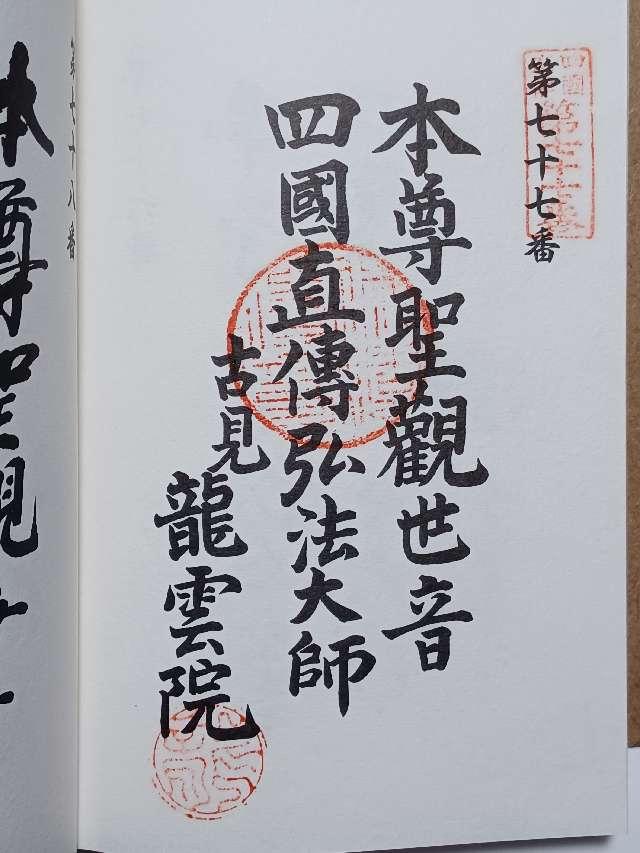 第七十七番
本尊聖觀世音
四國直傳弘法大師
古見
龍雲院
第七十八番